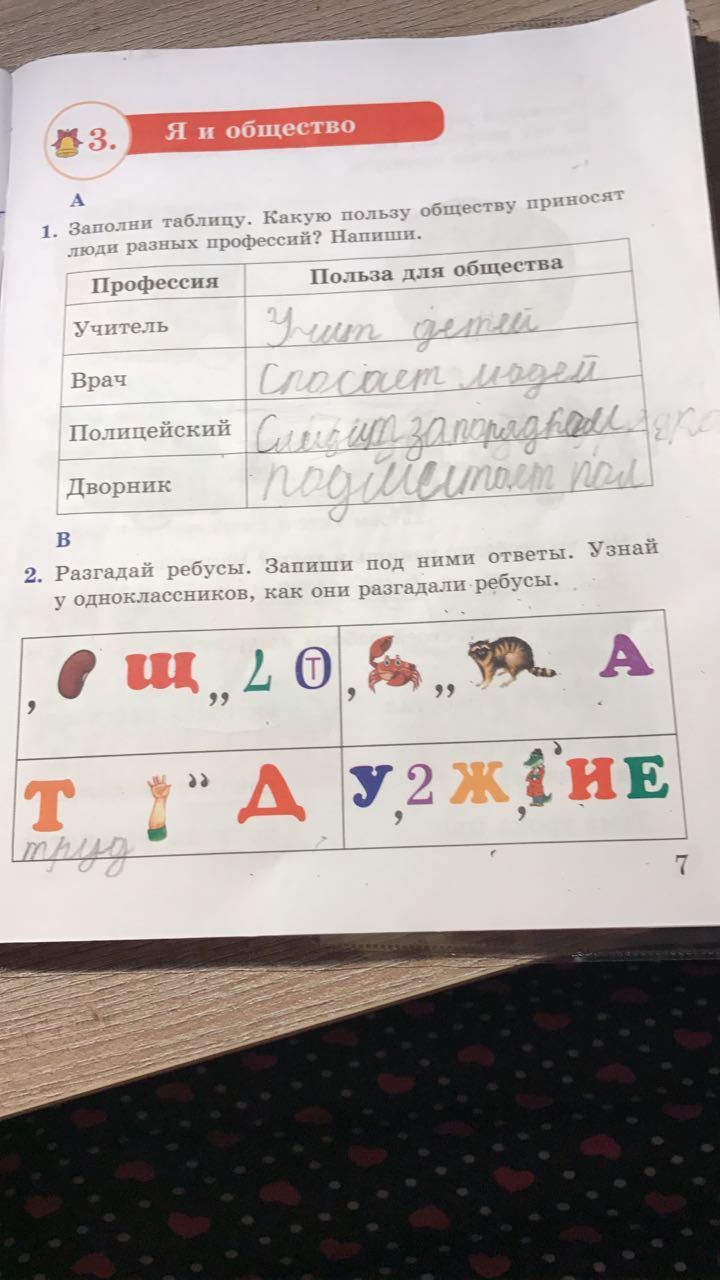 3. Я и общество
А
1. Заполни таблицу. Какую пользу обществу приносят
люди разных профессий? Напиши.
Профессия Польза для общества
Учитель Учит детей
Врач Спасает людей
Полицейский Следит за порядком
Дворник подметает пол
В
2. Разгадай ребусы. Запиши под ними ответы. Узнай
у одноклассников, как они разгадали ребусы.
, Щ ,, 7 О Т , ,, А
Т ,, Д У , 2 Ж , ' И Е
труд
7